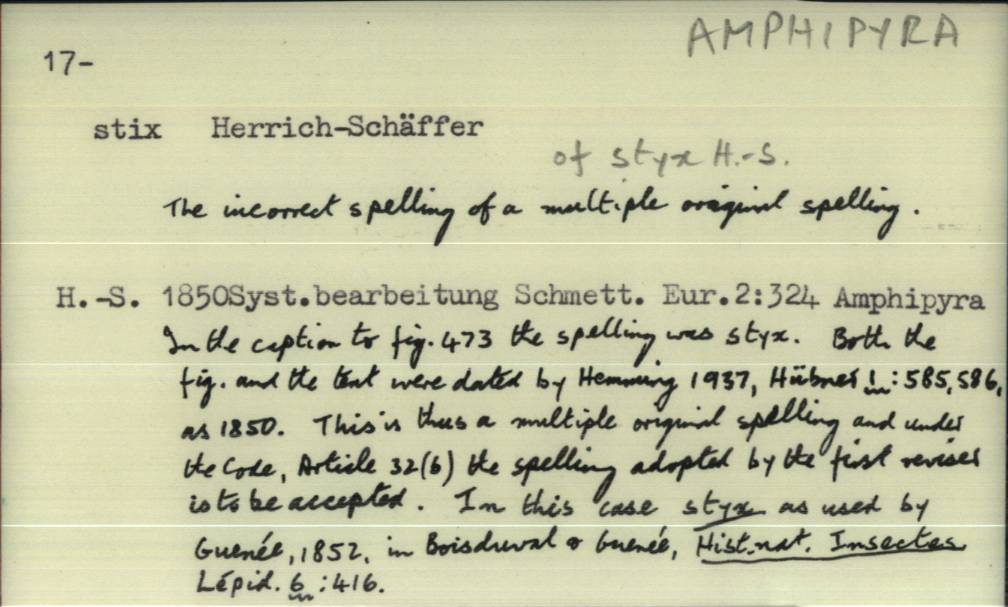 AMPHIPYRA
17-
stix Herrich-Schäffer
of styx H.-S.
The incorrect spelling of a multiple original spelling.
H.-S. 1850Syst.bearbeitung Schmett. Eur.2:324 Amphipyra
In the caption to fig. 473 the spelling was styx. Both the
fig. and the text were dated by Hemming 1937, Hübner 1:585,586,
as 1850. This is thus a multiple original spelling and under
the Code, Article 32(b) the spelling adopted by the first reviser
is to be accepted. In this case styx as used by
Guenée, 1852, in Boisduval & Guenée, Hist. nat. Insectes
Lépid. 6:416.